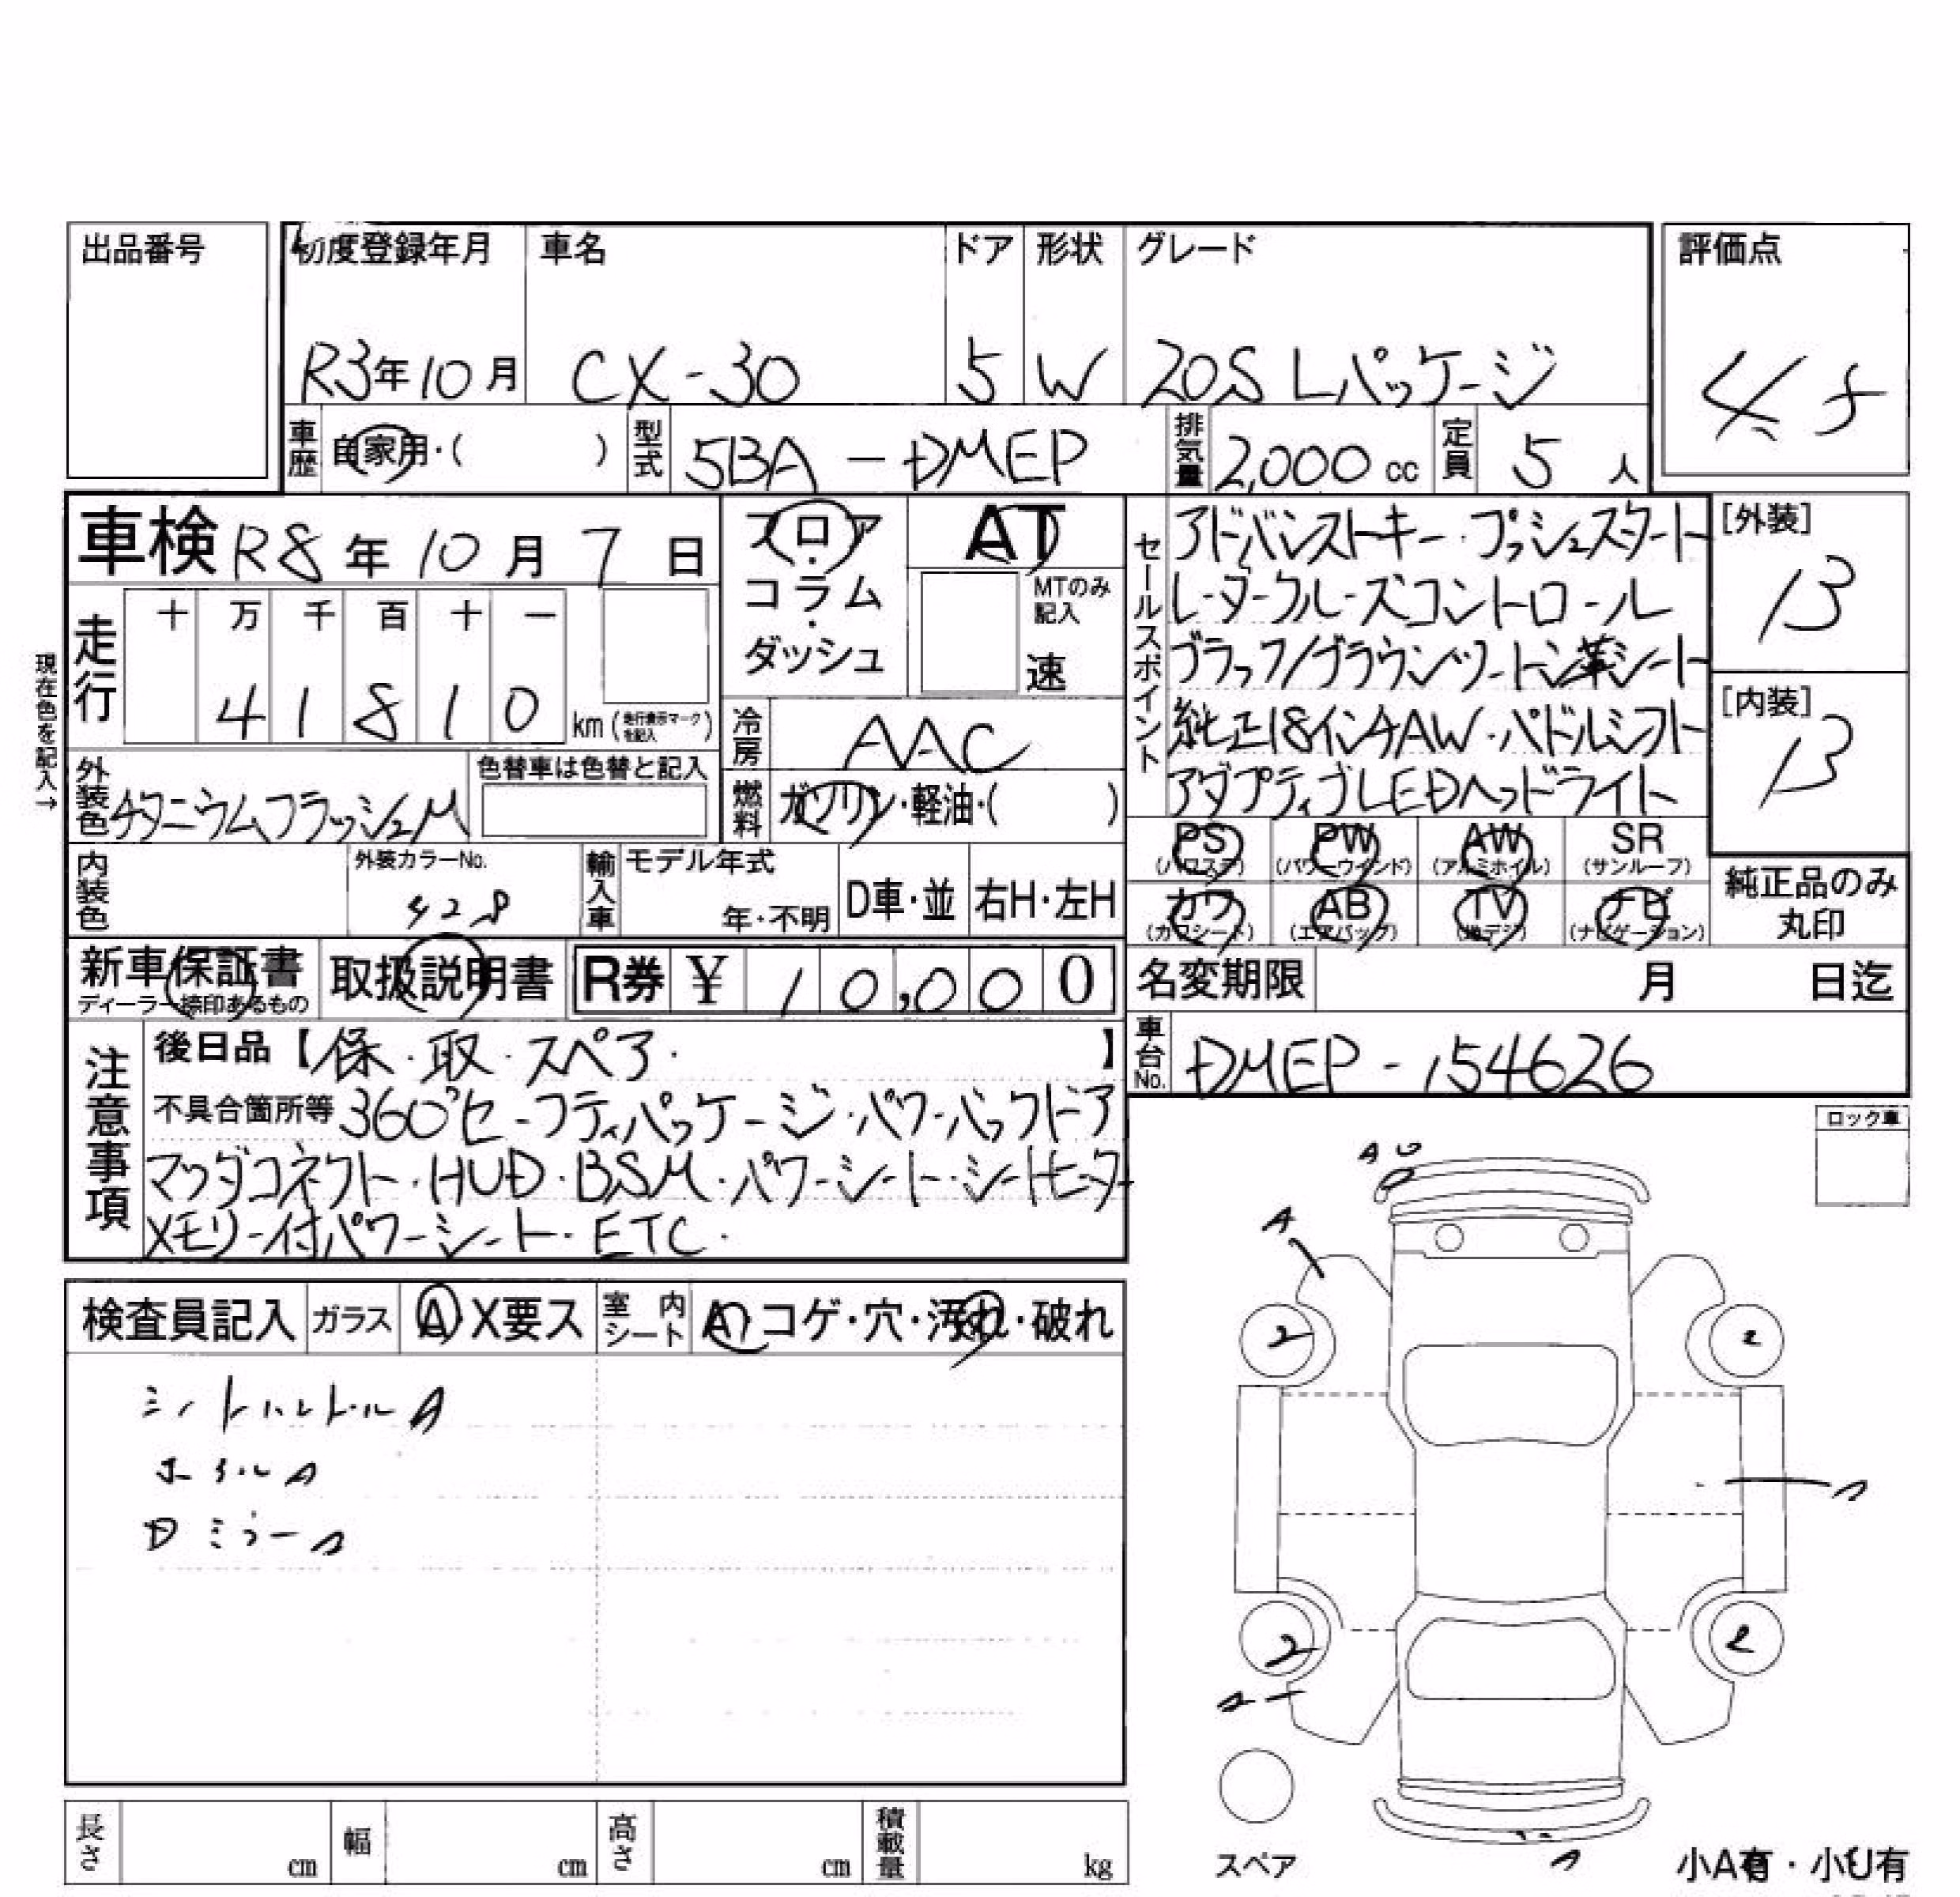 出品番号
初度登録年月 車名 ドア 形状 グレード 評価点
R3年10月 CX-30 5 W 20S Lパッケージ
車歴 自家用・( ) 型式 5BA-DMEP 排気量 2,000cc 定員 5人
車検 R8年10月7日
フロア・コラム・ダッシュ
AT
MTのみ記入
速
セールスポイント
アドバンストキー・プッシュスタート
レーダークルーズコントロール
ブラック/ブラウンツートン革シート
純正18インチAW・パドルシフト
アダプティブLEDヘッドライト
[外装]
[内装]
現在色を記入→
走行 十 万 千 百 十 一
4 1 8 1 0 km (走行表示マークを記入)
冷房 AAC
外装色 チタニウムフラッシュM 色替車は色替と記入
燃料 ガソリン・軽油・( )
PS (パワステ) PW (パワーウインド) AW (アルミホイル) SR (サンルーフ)
カワ (カワシート) AB (エアバッグ) TV (地デジ) ナビ (ナビゲーション)
純正品のみ丸印
内装色 外装カラーNo. 輸入車 モデル年式 年・不明 D車・並 右H・左H
428
新車保証書 ディーラー捺印あるもの 取扱説明書 R券 ¥ 10,000
名変期限 月 日迄
車台No. DMEP-154626
注意事項
後日品【保・取・スペア・ 】
不具合箇所等 360°セーフティパッケージ・パワーバックドア
マツダコネクト・HUD・BSM・パワーシート・シートヒーター
メモリー付パワーシート・ETC・
ロック車
A U
A
検査員記入 ガラス A X要ス 室内シート A・コゲ・穴・汚れ・破れ
A
Dミラー
2 2
2 2
長さ cm 幅 cm 高さ cm 積載量 kg
スペア
小A有・小U有